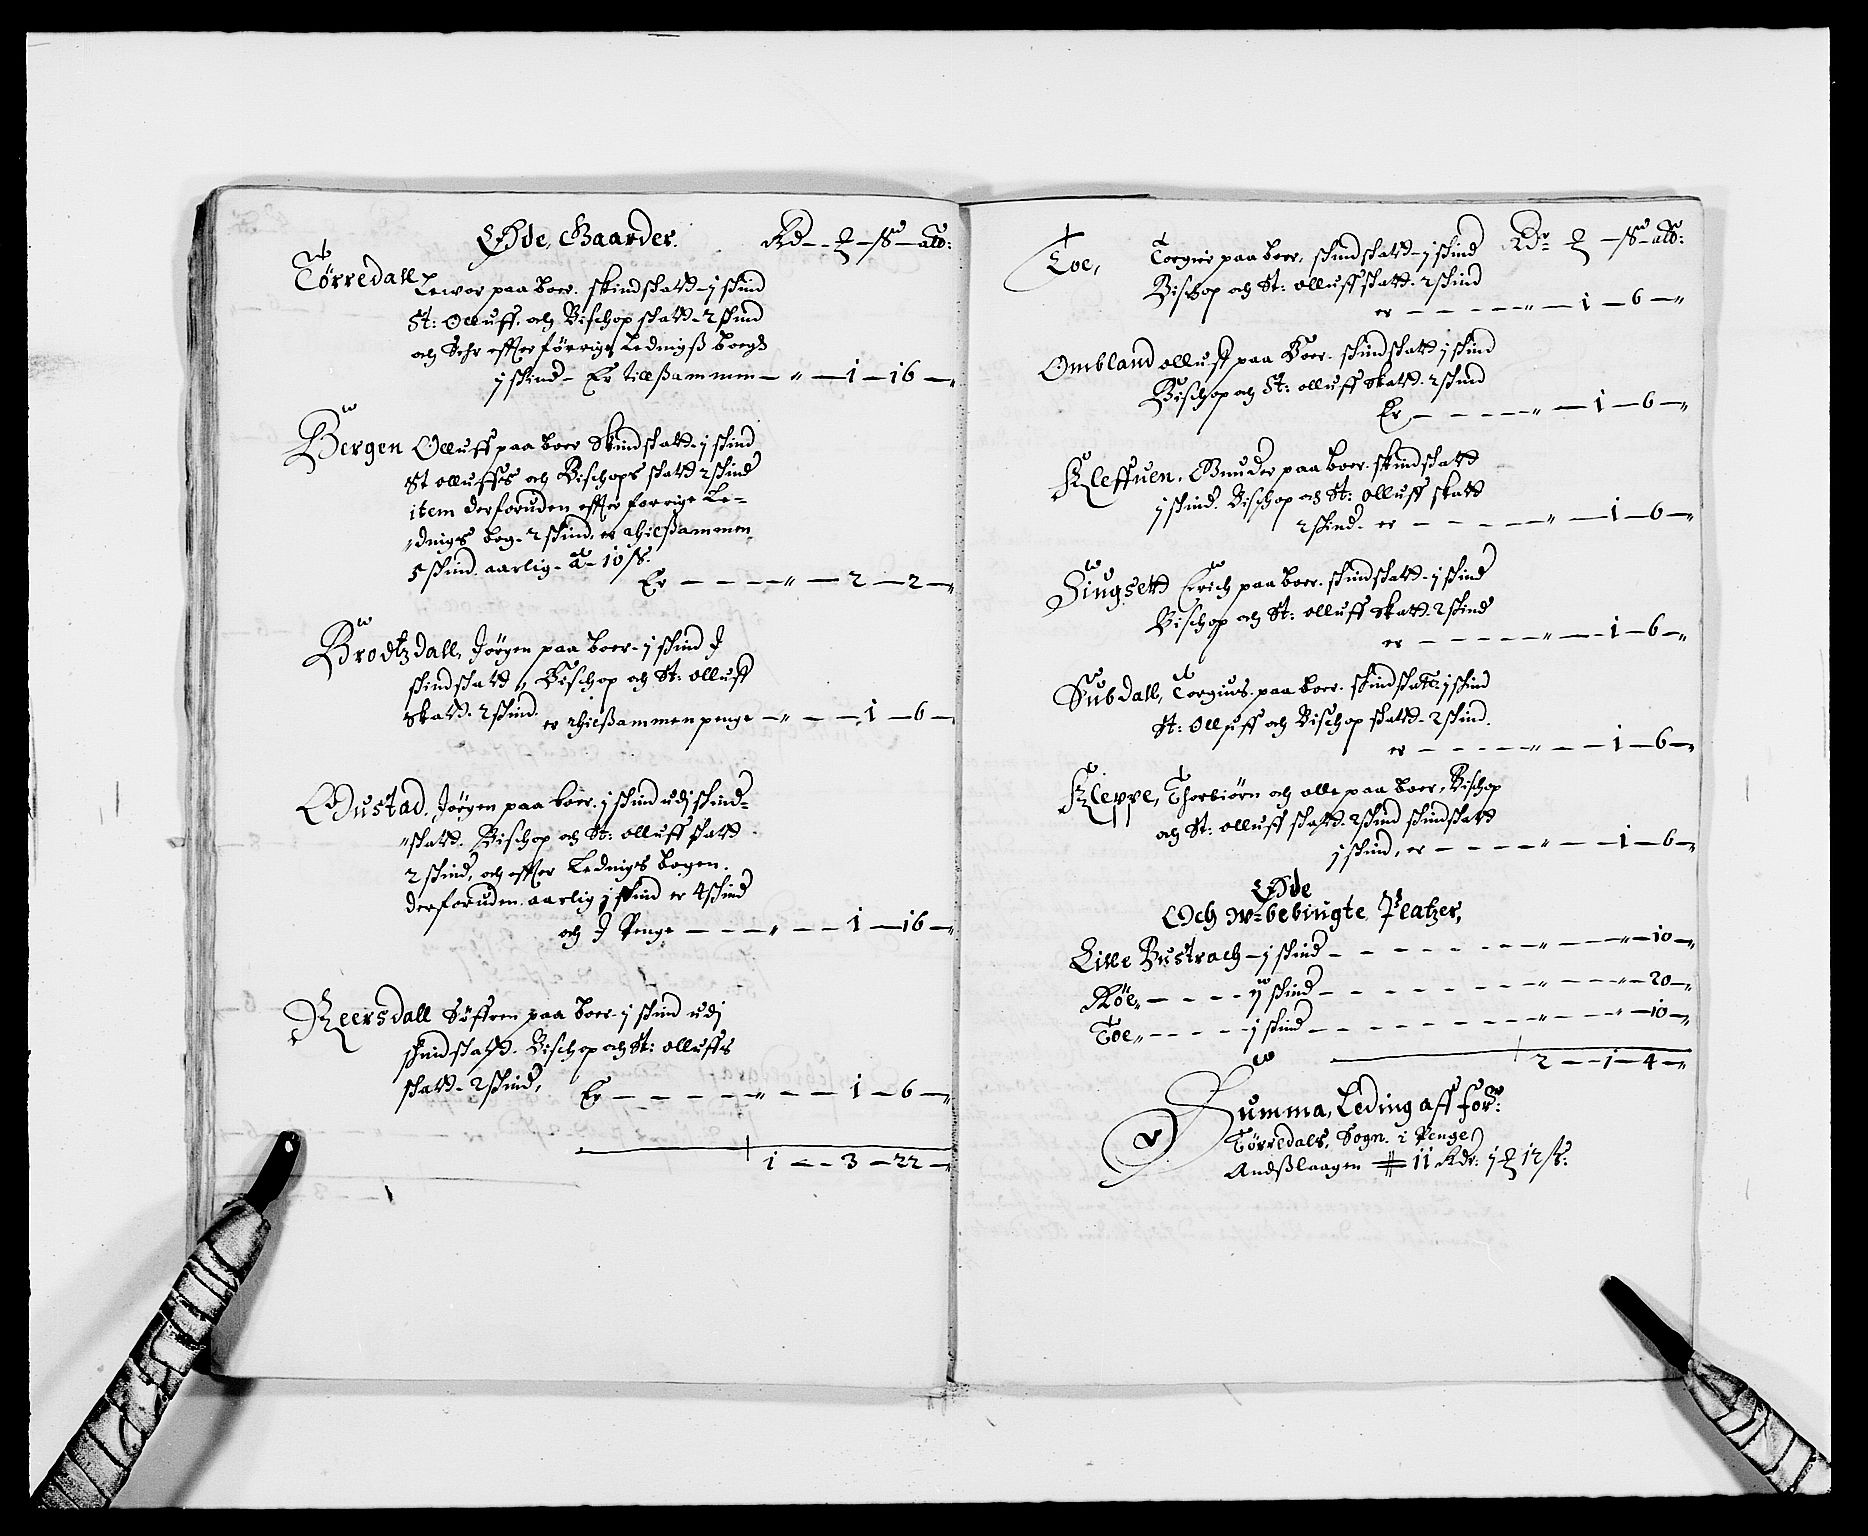 Øde Gaarder. Rd - ƺ - ß - alb:
Tørredall Lewor paa boer. skindskatt - j skind
St: Olluff. och Bischop skatt - 2 skind
och Sehr effter førrige Lednigß bogs
j skind - Er tillßammen - „ - 1 - 16 - „
Bergen Olluff paa boer Skindskatt - j skind
St olluffs och Bischops skatt 2 skind
item derforuden effter forrige Le-
„dnigs bog - 2 skind. er thilßammen
5 skind. aarlig - a - 10 ß.
Er - - - - „ - 2 - 2 - „
Brodtzdall, Jørgen paa boer - j skind J
skindskatt, Bischop och St: olluff
skatt. 2 skind. er thilßammen penge - „ - - 1 - 6 - „
Gustad. Jørgen paa boer. j skind udj skind-
„skatt. Bischop och St: olluff skatt
2 skind, och effter Lednigs bogen.
derforuden aarlig j skind er 4 skind
och J Penge - - - „ - - 1 - 16 - „
Keersdall Søffren paa boer - j skind udj
skindskatt. Bischop och St: olluffs
skatt - 2 skind, Er - - - - - „ - - 1 - 6 - „
1 - - 3 - 22 - „
Toe, Torgier paa boer, skindskatt - j skind Rdr ƺ - ß - alb:
Bischop och St: olluff skatt. 2 skind
er - - - - „ - 1 - 6 - „
Ombland olluff paa boer. skindskatt j skind
Bischop och St: olluff skatt. 2 skind
Er - - - - „ - 1 - 6 - „
Kleffuen. Gunder paa boer. skindskatt
j skind. Bischop och St: olluff skatt
2 skind. er - - - - „ - 1 - 6 - „
Liugsett Erich paa boer. skindskatt - j skind
Bischop och St: olluff skatt. 2 skind
er - - - - - „ - 1 - 6 - „
Subdall, Torgius paa boer. skindskatt: j skind
St: Olluff och Bischop skatt - 2 skind.
er - - - - - „ - - 1 - 6 - „
Kleppe, Thorbiørn och olle paa boer, Bischop
och St: olluff skatt. 2 skind skindskatt
j skind, er - - - - - „ - - 1 - 6 - „
Øde
Och w-bebingte Platzer,
Lille Bustrach - j skind - - - - - - „ - - - „ - 10 - „
Røe „ - - - - ij skind - - - - - - „ - - - „ - 20 - „
Toe „ - - - - j skind - - - - - - „ - - - „ - 10 - „
2 - - 1 - 4 - „
Summa, Leding aff for:
Tørredals, Sogn. i Penge
Andßlaagen 11 Rdr: j ƺ 12 ß: